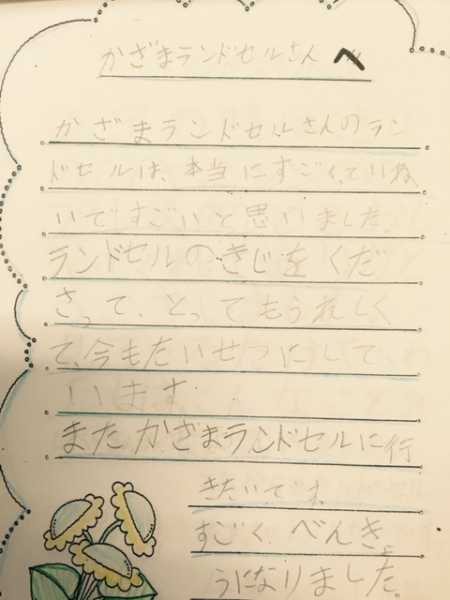 かざまランドセルさんへ
かざまランドセルさんのラン
ドセルは、本当にすごく、ていね
いですごいと思いました。
ランドセルのきじをくだ
さって、とってもうれしく
て、今もたいせつにして
います。
またかざまランドセルに行
きたいです。
すごくべんきょ
うになりました。